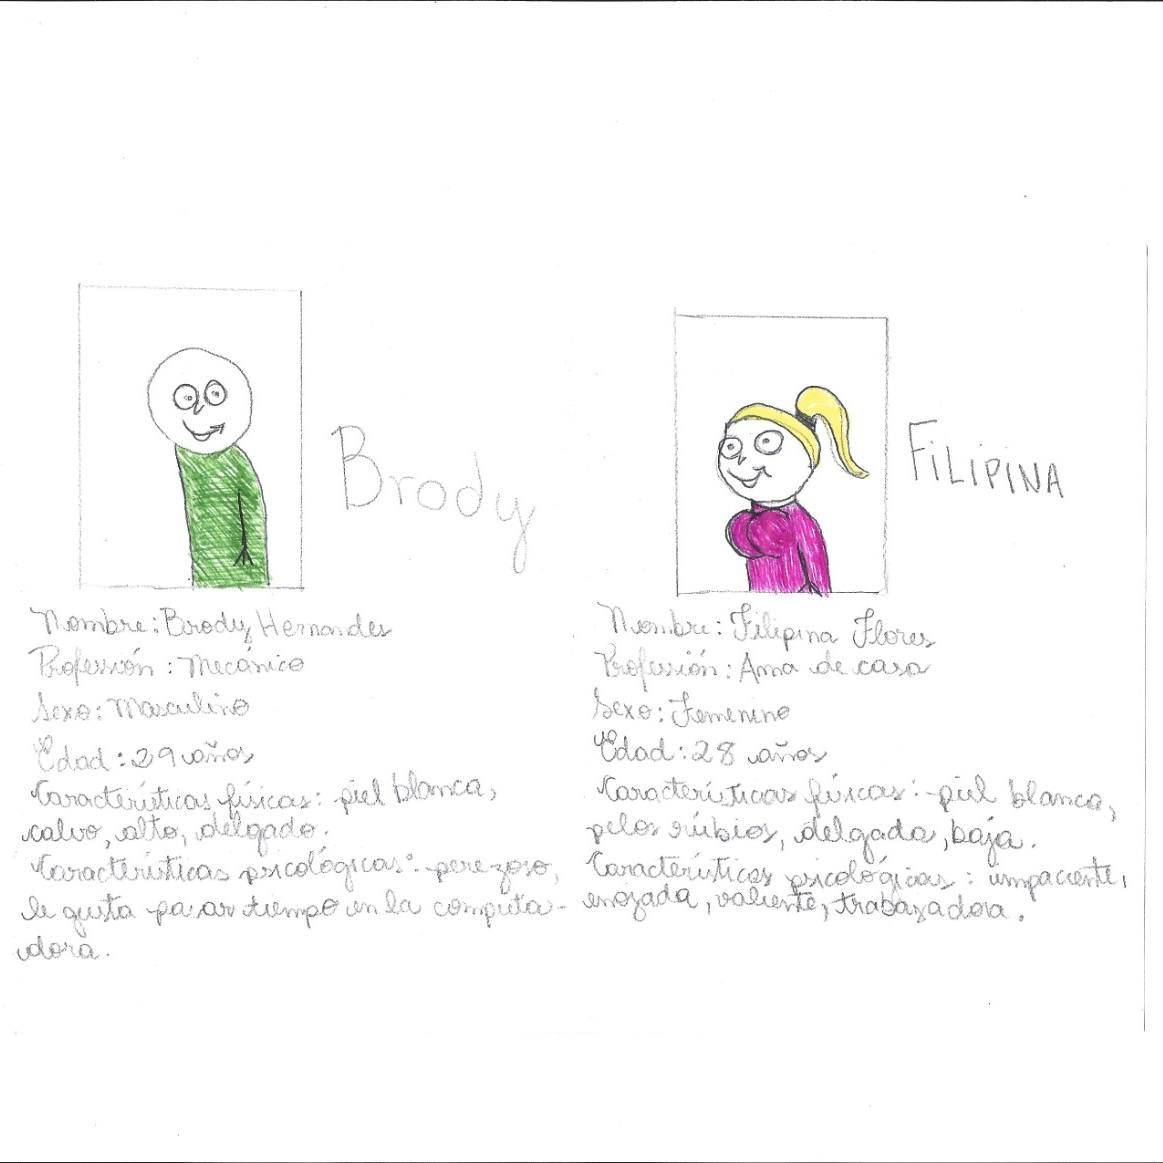 Brody
Nombre: Brody Hernandes
Profesión: Mecánico
Sexo: Masculino
Edad: 29 años
Características físicas: piel blanca,
calvo, alto, delgado.
Características psicológicas: perezoso,
le gusta pasar tiempo en la computa-
dora.
FiLipiNA
Nombre: Filipina Flores
Profesión: Ama de casa
Sexo: Femenino
Edad: 28 años
Características físicas: piel blanca,
pelos rúbios, delgada, baja.
Características psicológicas: impaciente,
enozada, valiente, trabazadora.